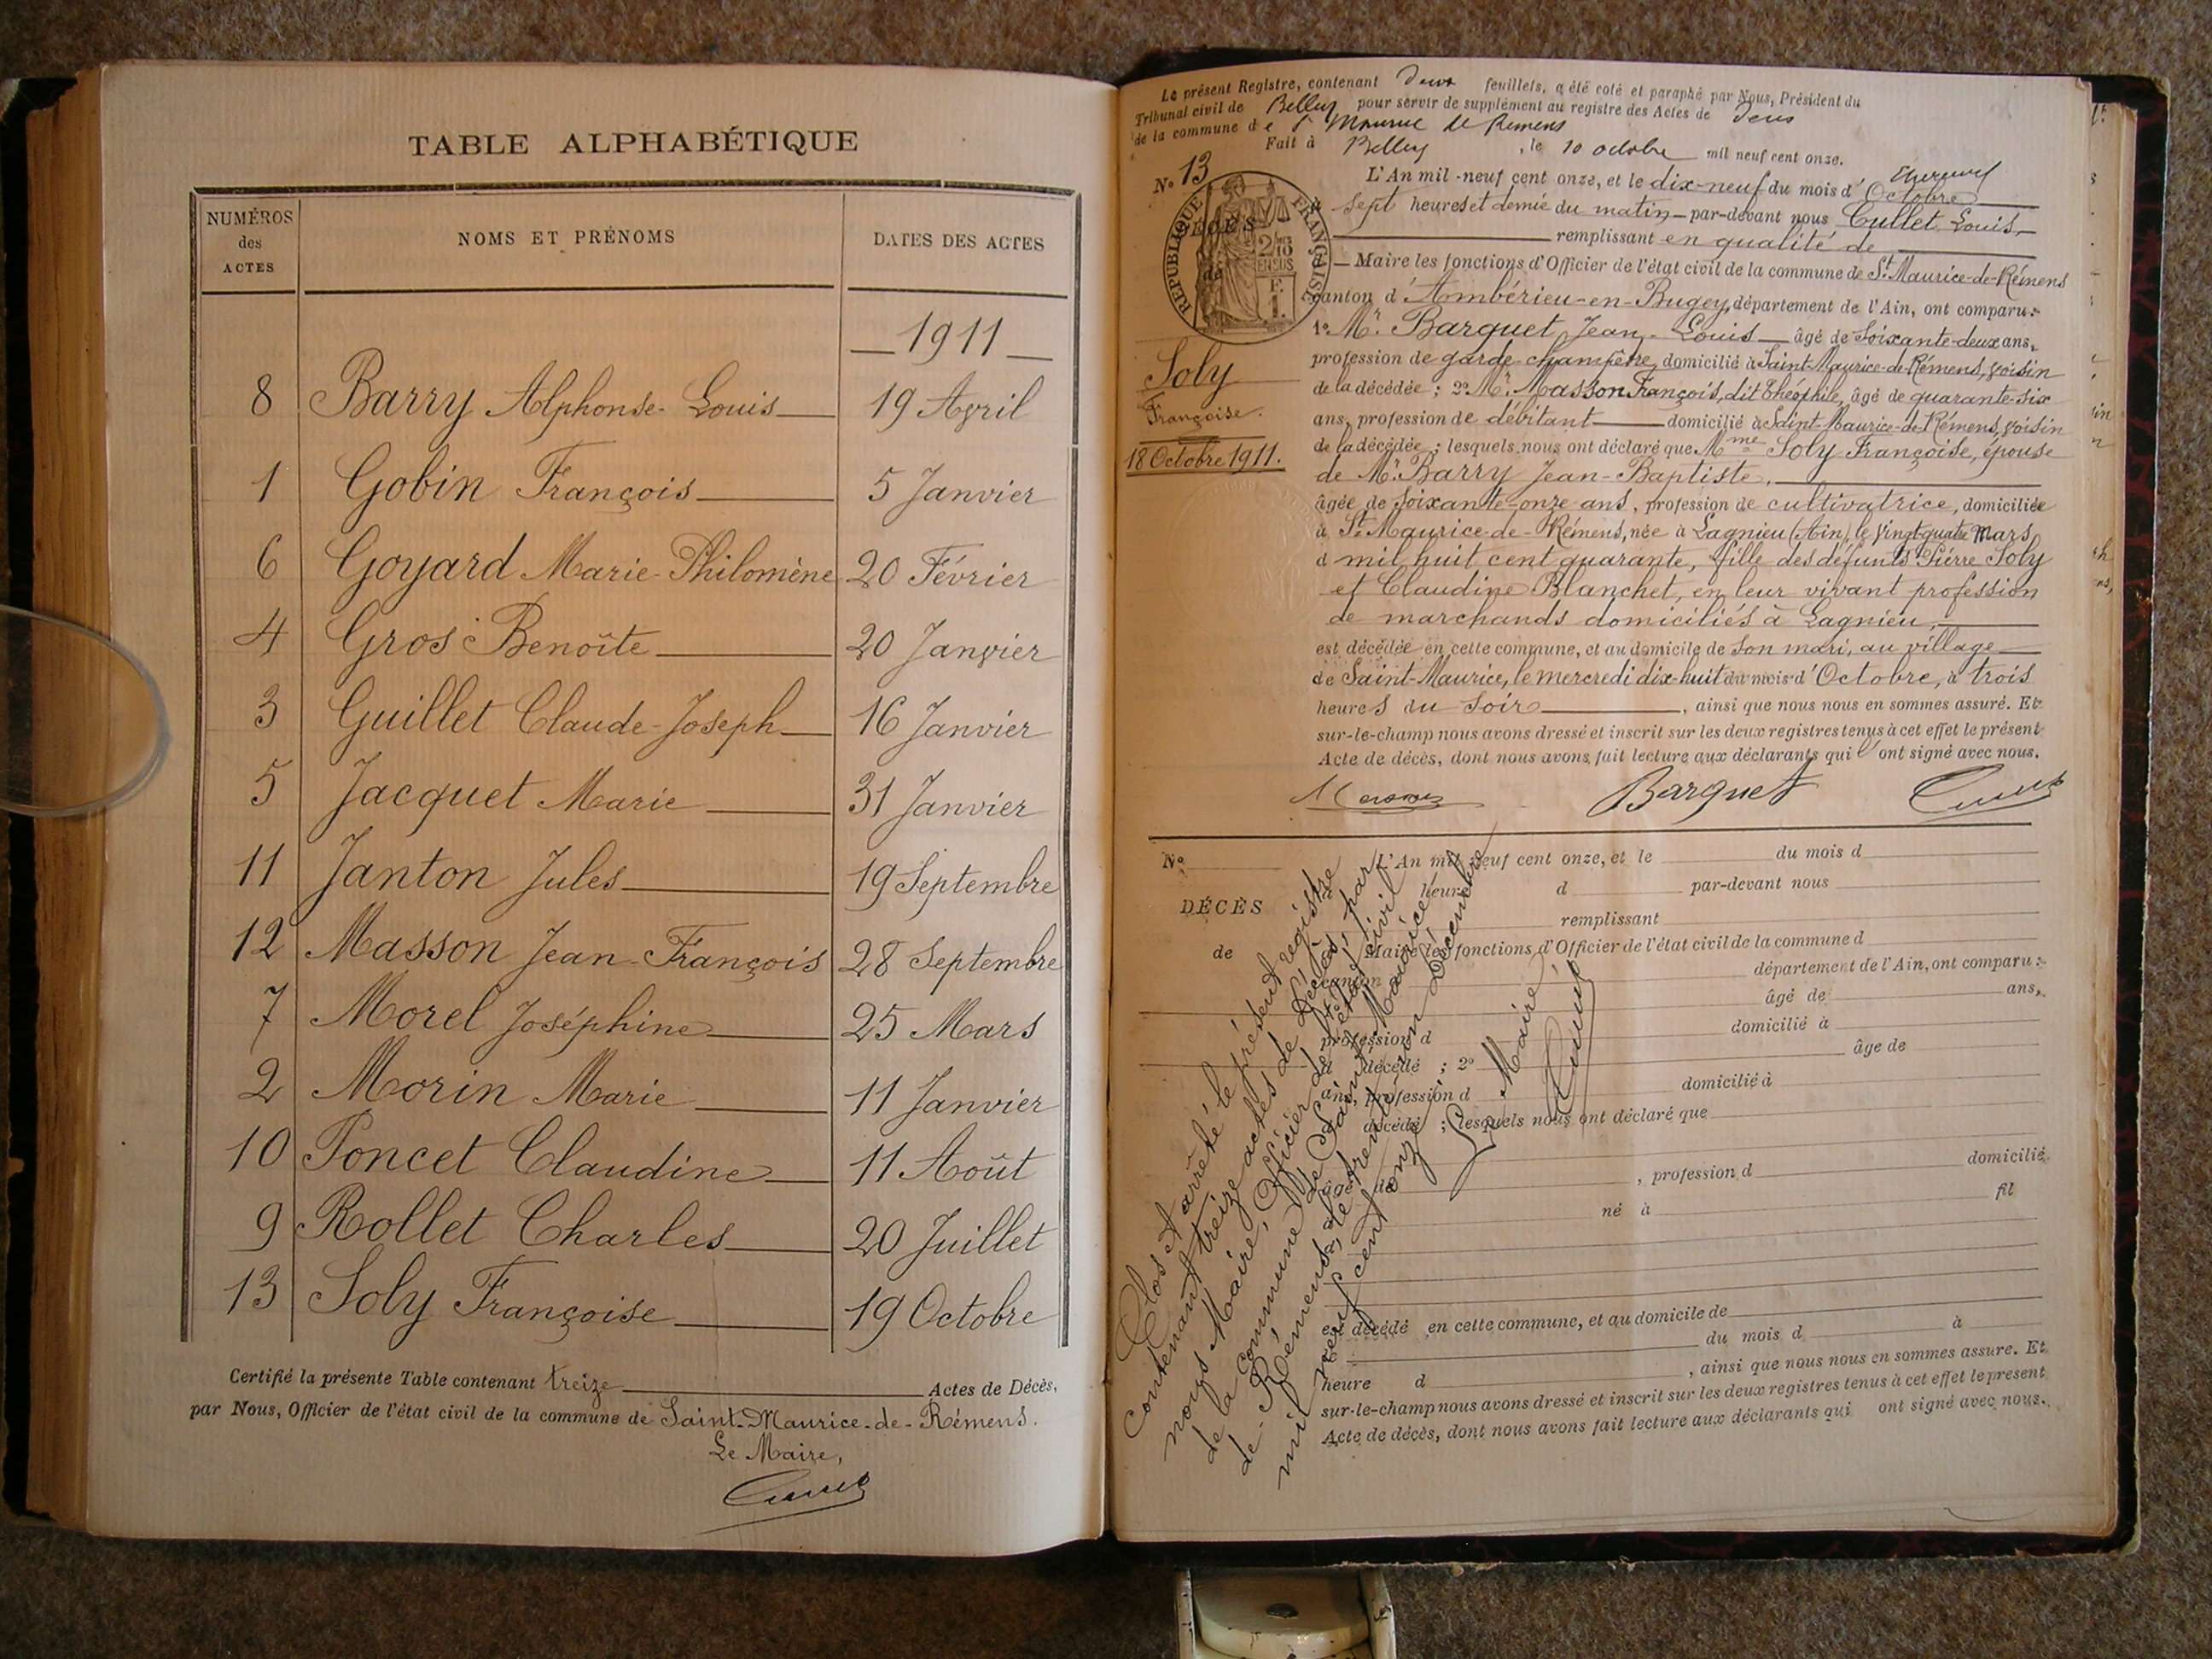 TABLE ALPHABÉTIQUE
NUMÉROS des ACTES
NOMS ET PRÉNOMS
DATES DES ACTES
1911
8 Barry Alphonse-Louis 19 Avril
1 Gobin François 5 Janvier
6 Goyard Marie-Philomène 20 Février
4 Gros Benoîte 20 Janvier
3 Guillet Claude-Joseph 16 Janvier
5 Jacquet Marie 31 Janvier
11 Janton Jules 19 Septembre
12 Masson Jean-François 28 Septembre
7 Morel Joséphine 25 Mars
2 Morin Marie 11 Janvier
10 Poncet Claudine 11 Août
9 Rollet Charles 20 Juillet
13 Soly Françoise 19 Octobre
Certifié la présente Table contenant treize Actes de Décès,
par Nous, Officier de l'état civil de la commune de Saint-Maurice-de-Rémens.
Le Maire,
Le présent Registre, contenant deux feuillets, a été coté et paraphé par Nous, Président du
Tribunal civil de Belley pour servir de supplément au registre des Actes de Deces
de la commune de St Maurice de Remens
Fait à Belley, le 10 octobre mil neuf cent onze.
No 13
RÉPUBLIQUE FRANÇAISE
Soly
Françoise.
18 Octobre 1911.
L'An mil-neuf cent onze, et le dix-neuf du mois d'Octobre
sept heures et demie du matin par-devant nous Cullet Louis,
remplissant en qualité de
Maire les fonctions d'Officier de l'état civil de la commune de St. Maurice-de-Rémens
canton d'Ambérieu-en-Bugey, département de l'Ain, ont comparu:
1o Mr. Barquet Jean-Louis âgé de soixante-deux ans,
profession de garde-champêtre, domicilié à Saint-Maurice-de-Rémens, voisin
de la décédée; 2o Mr. Masson François, dit Théophile, âgé de quarante-six
ans, profession de débitant domicilié à Saint-Maurice-de-Rémens, voisin
de la décédée; lesquels nous ont déclaré que Mme Soly Françoise, épouse
de Mr. Barry Jean-Baptiste,
âgée de soixante-onze ans, profession de cultivatrice, domiciliée
à St. Maurice-de-Rémens, née à Lagnieu (Ain), le vingt-quatre Mars
d mil huit cent quarante, fille des défunts Pierre Soly
et Claudine Blanchet, en leur vivant profession
de marchands domiciliés à Lagnieu,
est décédée en cette commune, et au domicile de son mari, au village
de Saint-Maurice, le mercredi dix-huit du mois d'Octobre, à trois
heures du soir, ainsi que nous nous en sommes assuré. Et
sur-le-champ nous avons dressé et inscrit sur les deux registres tenus à cet effet le présent
Acte de décès, dont nous avons fait lecture aux déclarants qui l'ont signé avec nous.
Masson Barquet
No
DÉCÈS
de
L'An mil neuf cent onze, et le du mois d
heure d par-devant nous
remplissant
Maire les fonctions d'Officier de l'état civil de la commune d
canton département de l'Ain, ont comparu:
âgé de ans,
profession d domicilié à
d décédé ; 2o âge de
ans, profession d domicilié à
décédé ; lesquels nous ont déclaré que
âgé de , profession d domicilié
né à fil
est décédé en cette commune, et au domicile de
du mois d à
heure d , ainsi que nous nous en sommes assure. Et
sur-le-champ nous avons dressé et inscrit sur les deux registres tenus à cet effet le present
Acte de décès, dont nous avons fait lecture aux déclarants qui ont signé avec nous.
Clos et arrêté le présent registre
contenant treize actes de Décès, par
nous Maire, Officier de l'état civil
de la commune de Saint-Maurice
de-Rémens, le trente-un Décembre
mil neuf cent onze.
Le Maire